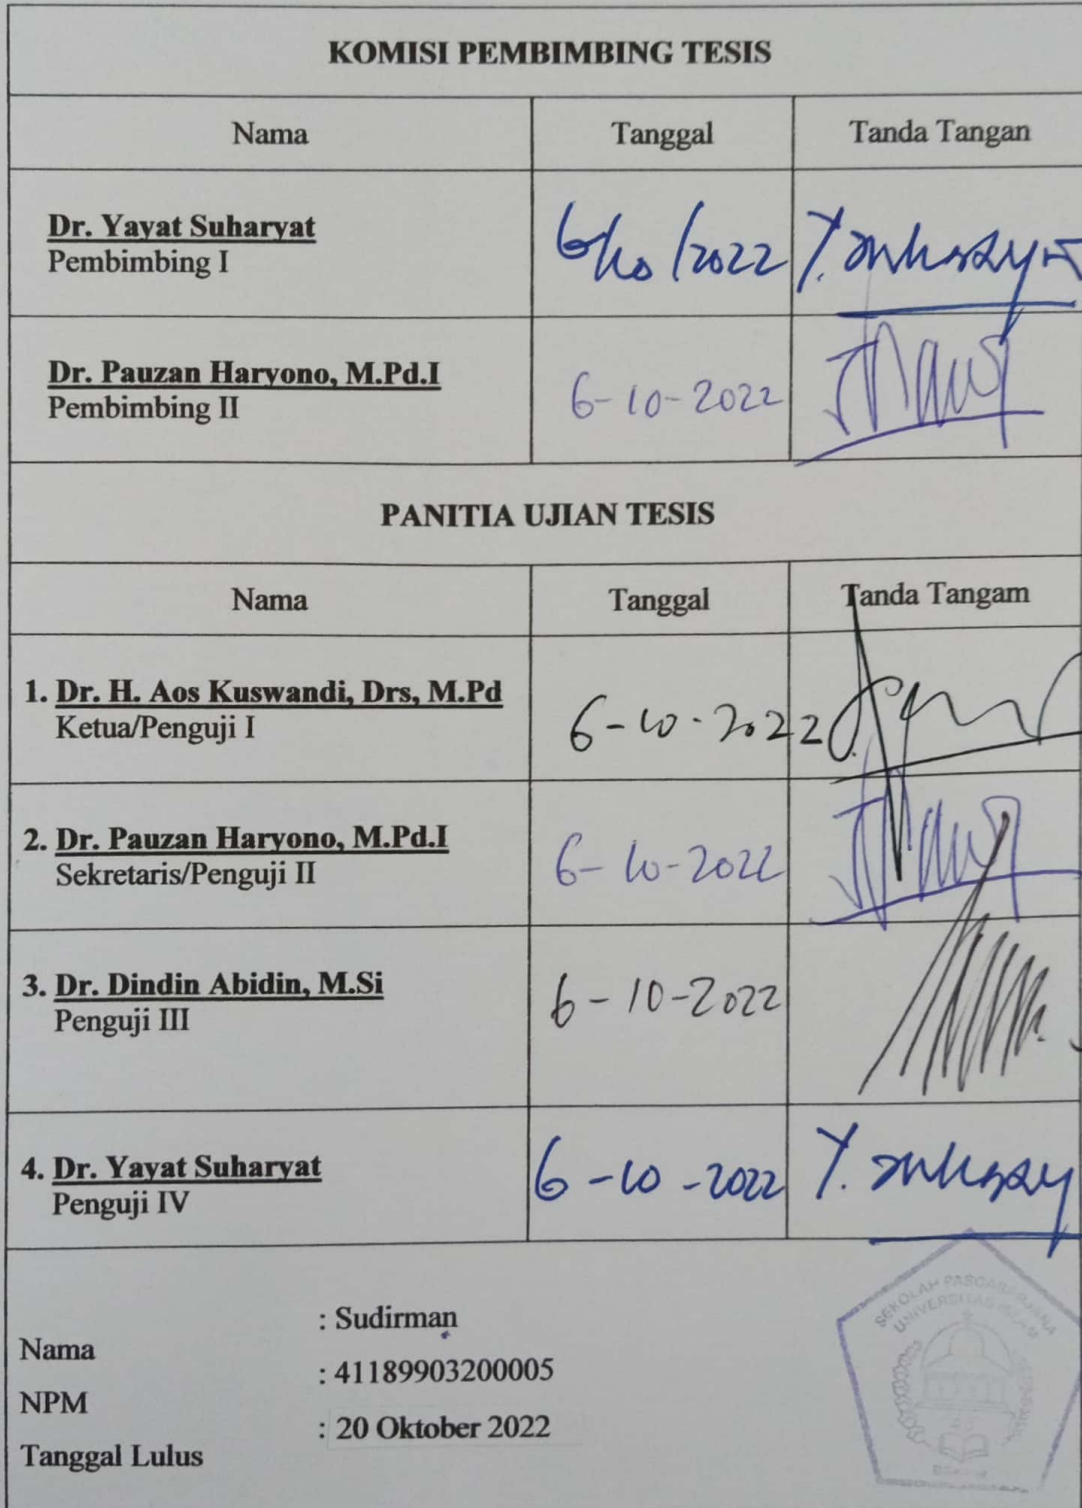 KOMISI PEMBIMBING TESIS
Nama Tanggal Tanda Tangan
Dr. Yayat Suharyat
Pembimbing I
6/10/2022
Dr. Pauzan Haryono, M.Pd.I
Pembimbing II
6-10-2022
PANITIA UJIAN TESIS
Nama Tanggal Tanda Tangam
1. Dr. H. Aos Kuswandi, Drs, M.Pd
Ketua/Penguji I
6-10-2022
2. Dr. Pauzan Haryono, M.Pd.I
Sekretaris/Penguji II
6-10-2022
3. Dr. Dindin Abidin, M.Si
Penguji III
6-10-2022
4. Dr. Yayat Suharyat
Penguji IV
6-10-2022
Nama : Sudirman
NPM : 41189903200005
Tanggal Lulus : 20 Oktober 2022
SEKOLAH PASCASARJANA
UNIVERSITAS ISLAM